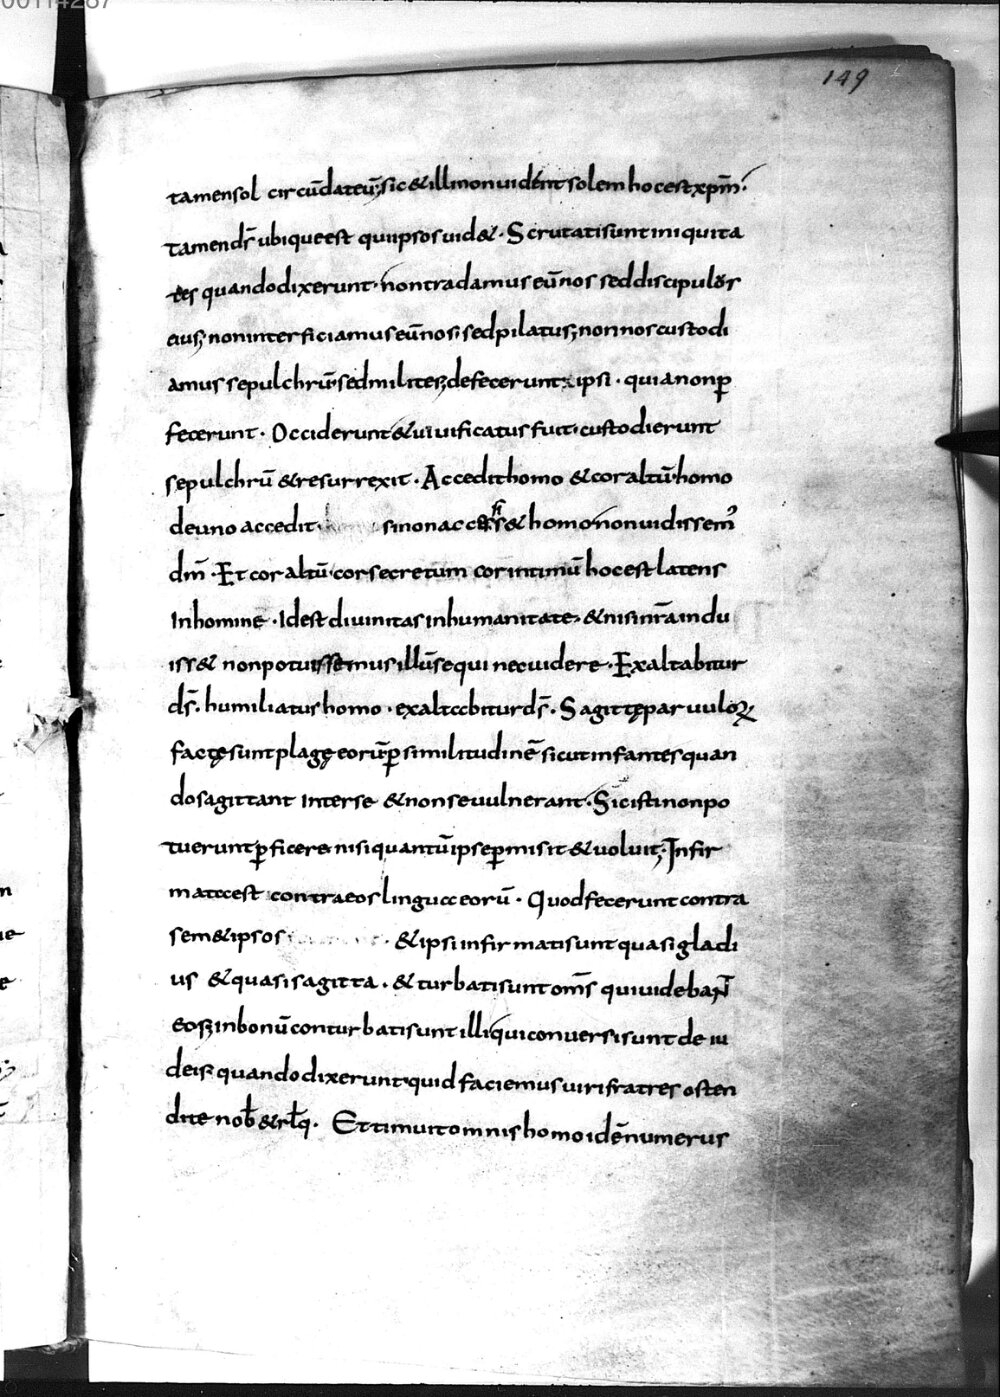 00114287
149
tamen sol circūdat eū; sic & illi non uident solem hoc est xpm̄.
tamen ds̄ ubique est qui ipsos uid&. Scrutati sunt iniquita
tes quando dixerunt. non tradamus eū nos sed discipulus
eius; non interficiamus eū nos. sed pilatus; non nos custodi
amus sepulchrū. sed milites; defecerunt ipsi. quia non p̱
fecerunt. Occiderunt & uiuificatus fuit. custodierunt
sepulchrū & resurrexit. Accedit homo & cor altū. homo
deuno accedit. si non access& homo non uidissem᾿
dm̄. Et cor altū. cor secretum cor intimū hoc est latens
In homine. Id est diuinitas in humanitate. & nisi nr̄a indu
iss& non potuissemus illū sequi nec uidere. Exaltabitur
ds̄. humiliatus homo. exaltabitur ds̄. Sagittę paruuloꝝ
factę sunt plagę eorū. p̱ similitudinē sicut infantes quan
do sagittant Inter se & non se uulnerant. Sic isti non po
tuerunt p̱ficere nisi quantū ipse p̱misit & uoluit; Infir
mata est contra eos linguae eorū. Quod fecerunt contra
sem& ipsos & ipsi infirmati sunt quasi gladi
us & quasi sagitta. & turbati sunt om̄s qui uidebant
eos; in bonū conturbati sunt illi qui conuersi sunt de iu
deis; quando dixerunt quid faciemus uiri fratres osten
dite nob̄ & rl̄q. Et timuit omnis homo id ē numerus